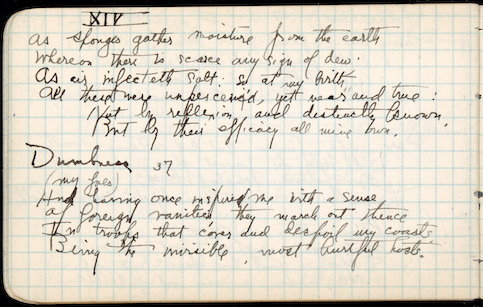 XIV
As sponges gather moisture from the earth
Whereon there is scarce any sign of dew.
As air infecteth salt: so at my birth
All these were unperceiv'd, yet near and true:
Not by reflexion, and distinctly known,
But by their efficacy all mine own.
Dumbness 37
(my foes)
And having once inspired me with a sense
Of foreign vanities they march out thence
In troops that cover and despoil my coasts,
Being the invisible, most hurtful hosts.